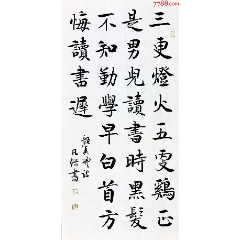 7788.com
三更燈火五更鷄正
是男兒讀書時黑髮
不知勤學早白首方
悔讀書遲